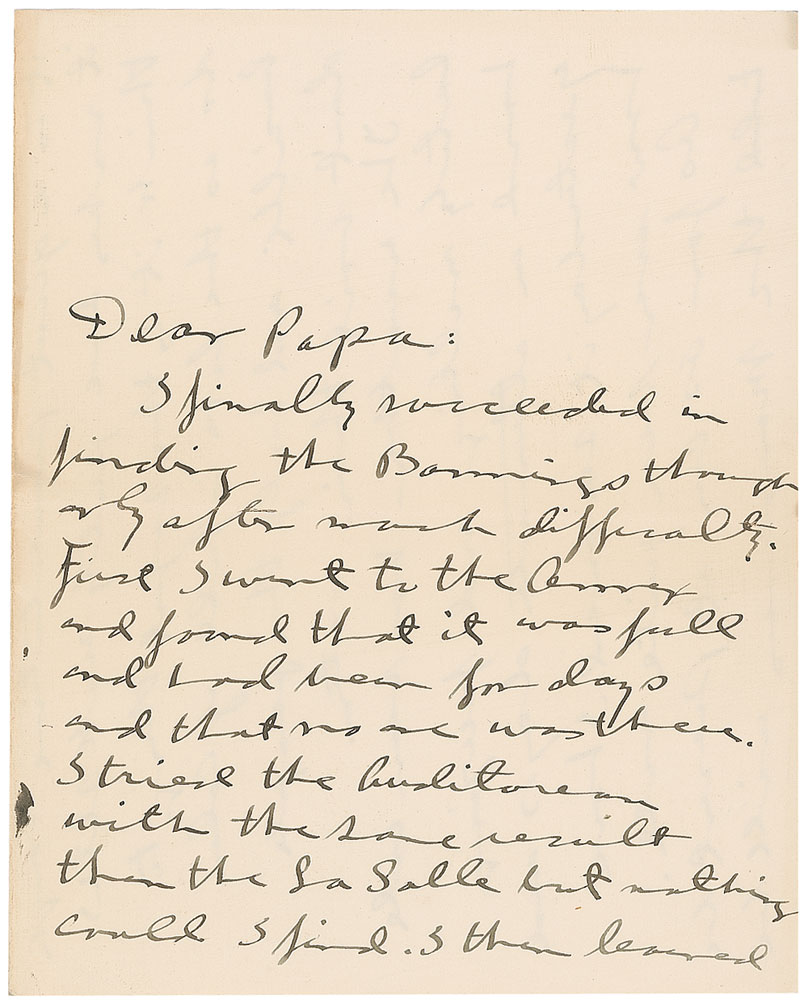 Dear Papa:
I finally succeeded in
finding the Bannings though
only after much difficulty.
First I went to the Annex
and found that it was full
and had been for days
and that no one was there.
I tried the Auditoream
with the same result
then the La Salle but nothing
could I find. I then learned